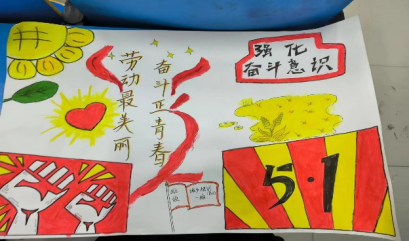 劳动最美丽
奋斗正青春
强化
奋斗意识
5·1